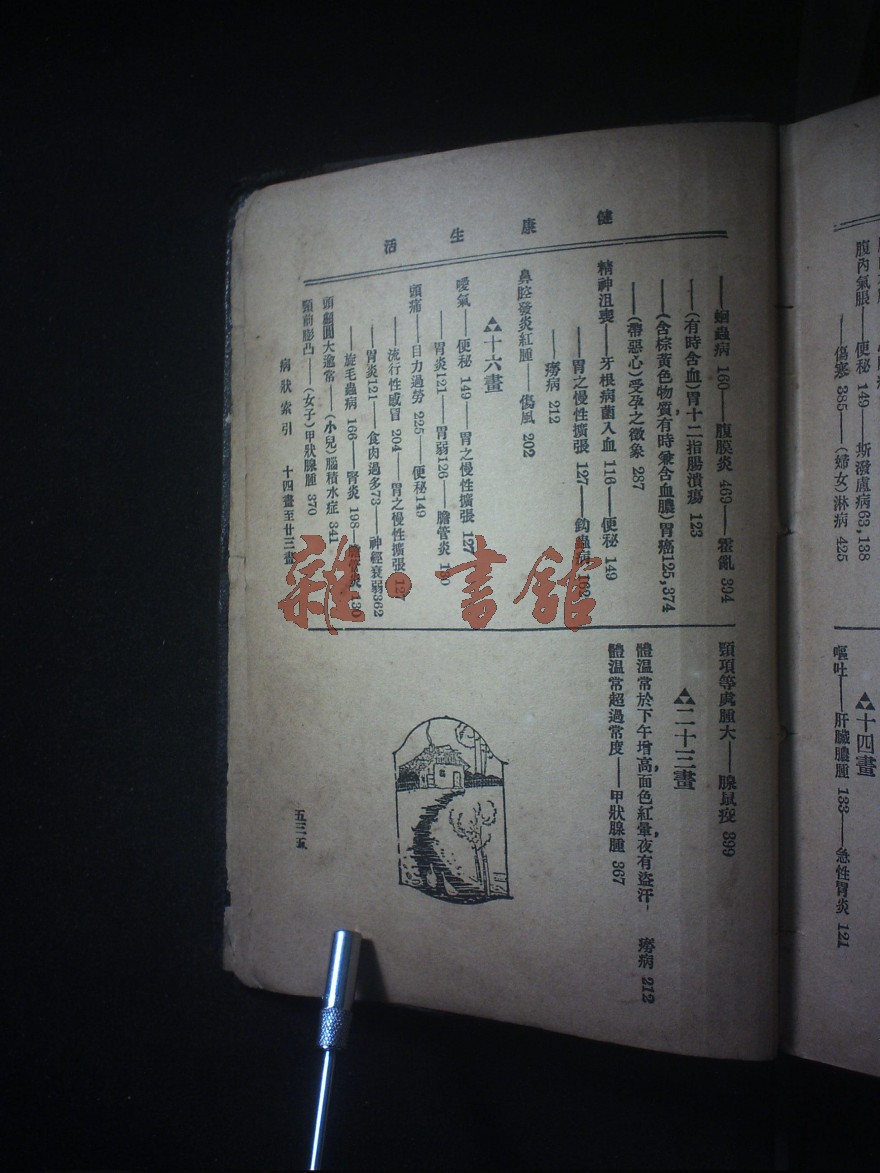 腹內氣脹——便秘 149——斯潑盧病63,138
——傷寒 385——(婦女)淋病 425
▲十四畫
嘔吐——肝臟膿腫 133——急性胃炎 121
健康生活
——蛔蟲病 160——腹膜炎 463——霍亂 394
——(有時含血)胃十二指腸潰瘍 123
——(含棕黃色物質,有時兼含血膿)胃癌125,374
——(帶惡心)受孕之徵象 287
精神沮喪——牙根病菌入血 116——便秘 149
——胃之慢性擴張 127——鈎蟲病 162
——癆病 212
鼻腔發炎紅腫——傷風 202
▲十六畫
噯氣——便秘 149——胃之慢性擴張 127
——胃炎121——胃弱126——膽管炎 130
頭痛——目力過勞 225——便秘149
——流行性感冒 204——胃之慢性擴張 127
——胃炎121——食肉過多73——神經衰弱362
——旋毛蟲病 166——腎炎 198——膽管炎 130
頭顱圓大逾常——(小兒)腦積水症 341
頸前膨凸——(女子)甲狀腺腫 370
頸項等處腫大——腺鼠疫 399
▲二十三畫
體溫常於下午增高,面色紅暈,夜有盜汗——癆病 212
體溫常超過常度——甲狀腺腫 367
病狀索引 十四畫至廿三畫
五三五
雜·書館